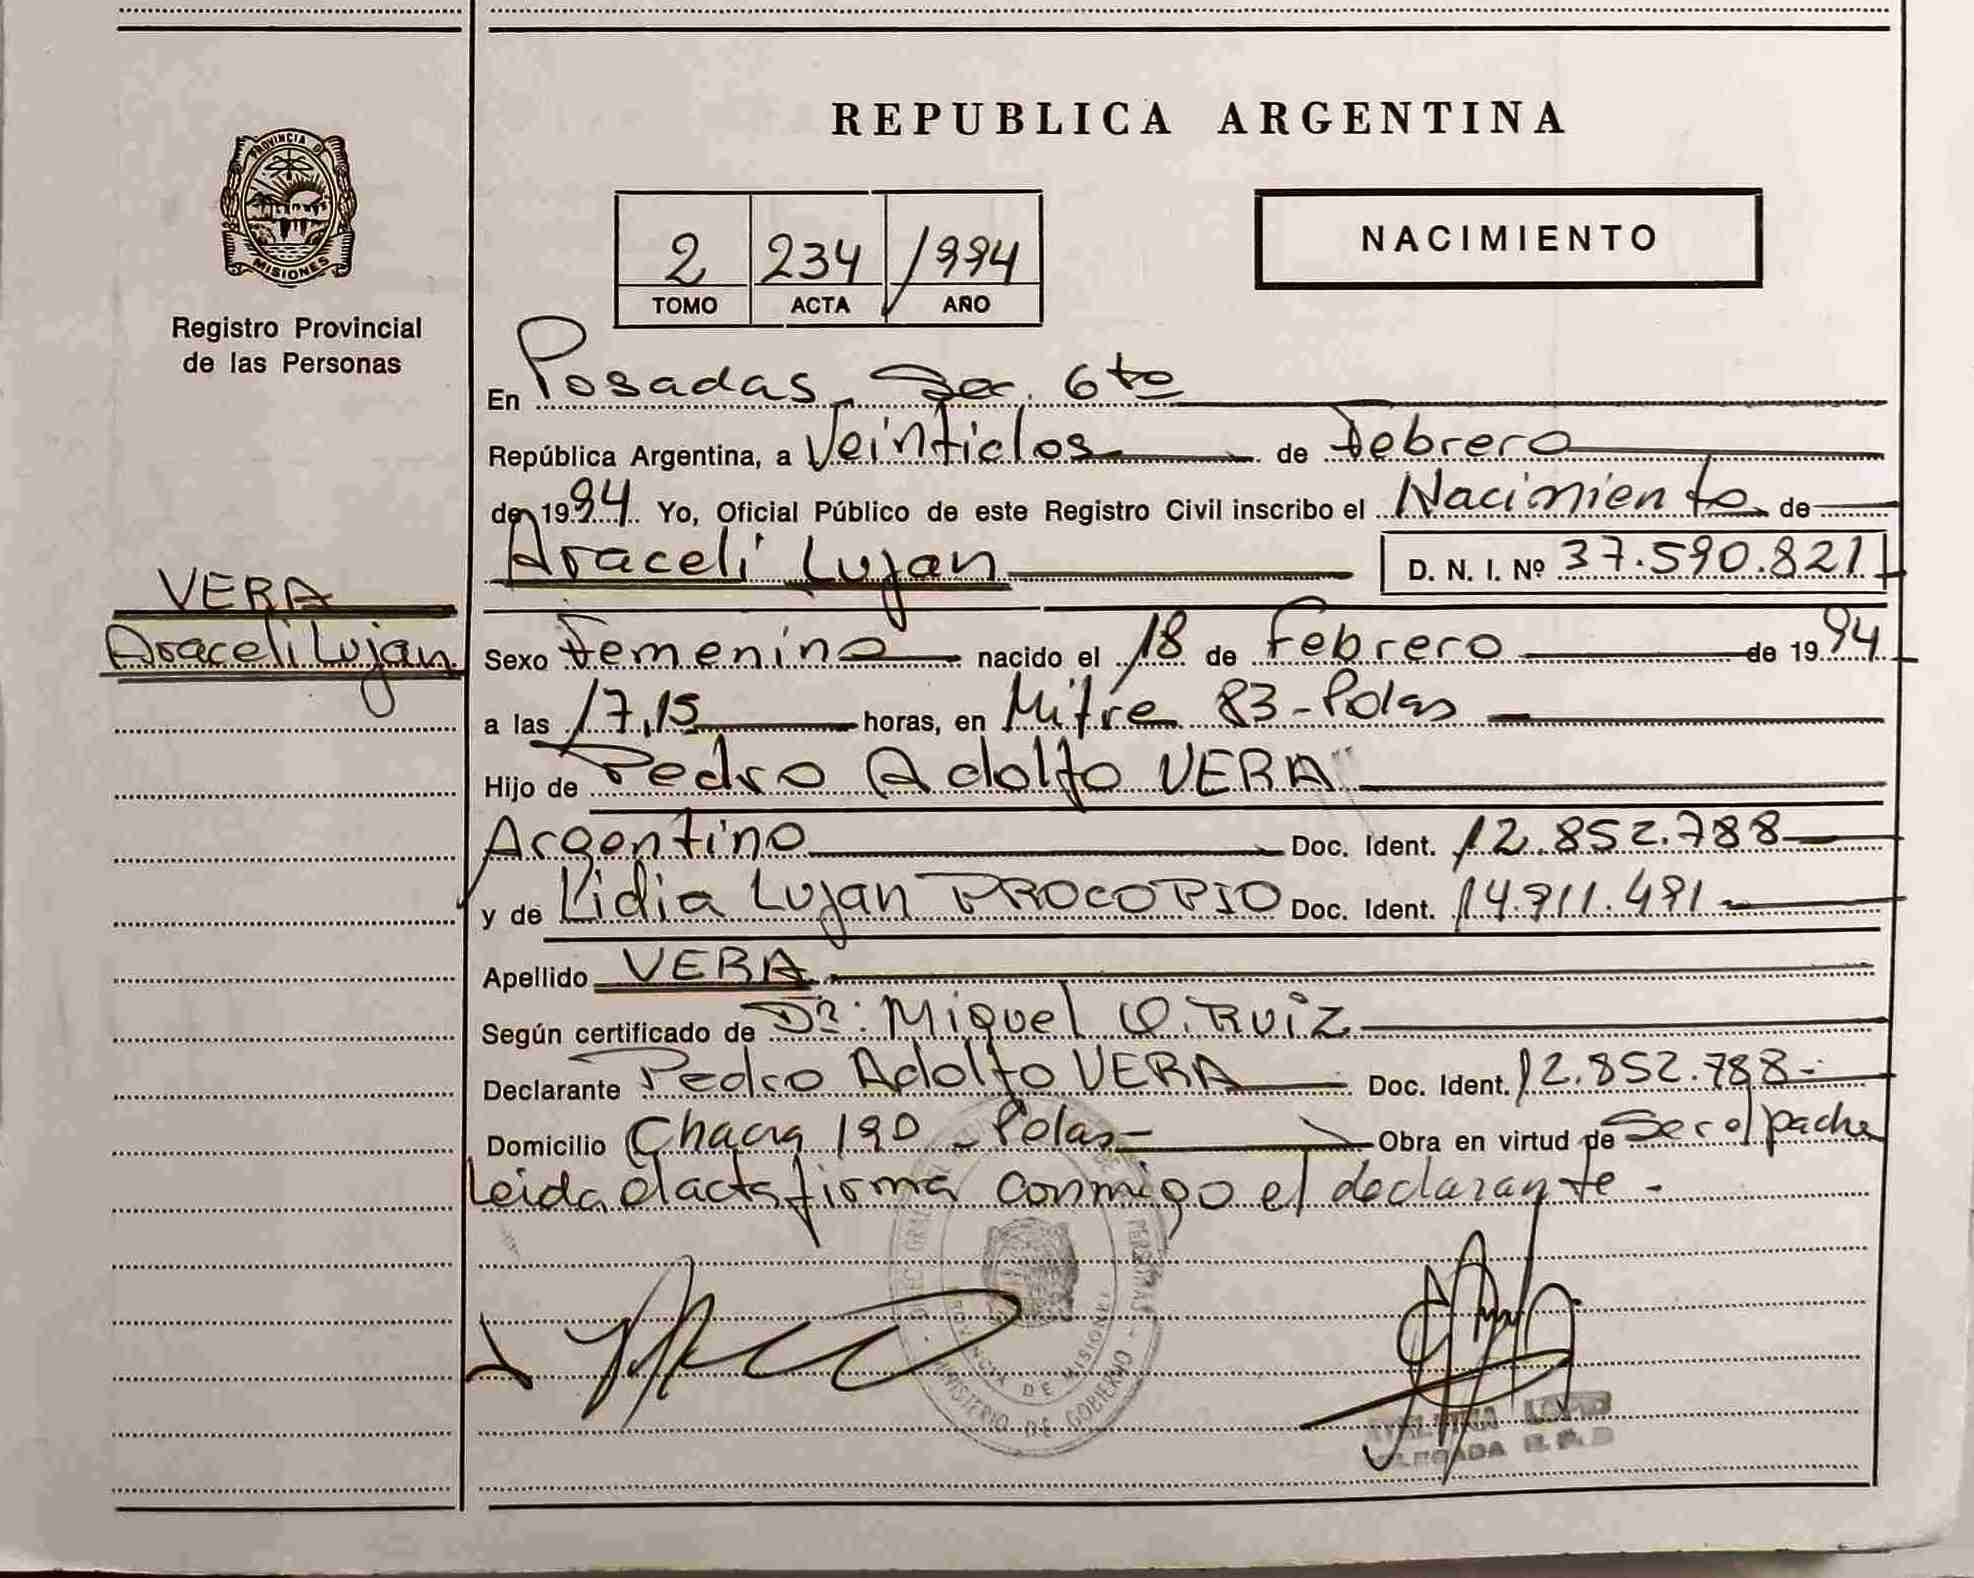 PROVINCIA D
MISIONES
Registro Provincial
de las Personas
VERA
Araceli Lujan
REPUBLICA ARGENTINA
2 234 1994
TOMO ACTA AÑO
NACIMIENTO
En Posadas Sec. 6to
República Argentina, a Veintidos de Febrero
de 1994 Yo, Oficial Público de este Registro Civil inscribo el Nacimiento de
Araceli Lujan D. N. I. Nº 37.590.821
Sexo Femenino nacido el 18 de Febrero de 1994
a las 17,15 horas, en Mitre 83-Pdas
Hijo de Pedro Adolfo VERA
Argentino Doc. Ident. 12.852.788
y de Lidia Lujan PROCOPIO Doc. Ident. 14.911.491
Apellido VERA
Según certificado de Dr: Miguel O. RUIZ
Declarante Pedro Adolfo VERA Doc. Ident. 12.852.788-
Domicilio Chacra 190 - Pdas- Obra en virtud de Ser el padre
Leida el acta firma conmigo el declarante -
PROVINCIA DE MISIONES
MINISTERIO DE GOBIERNO